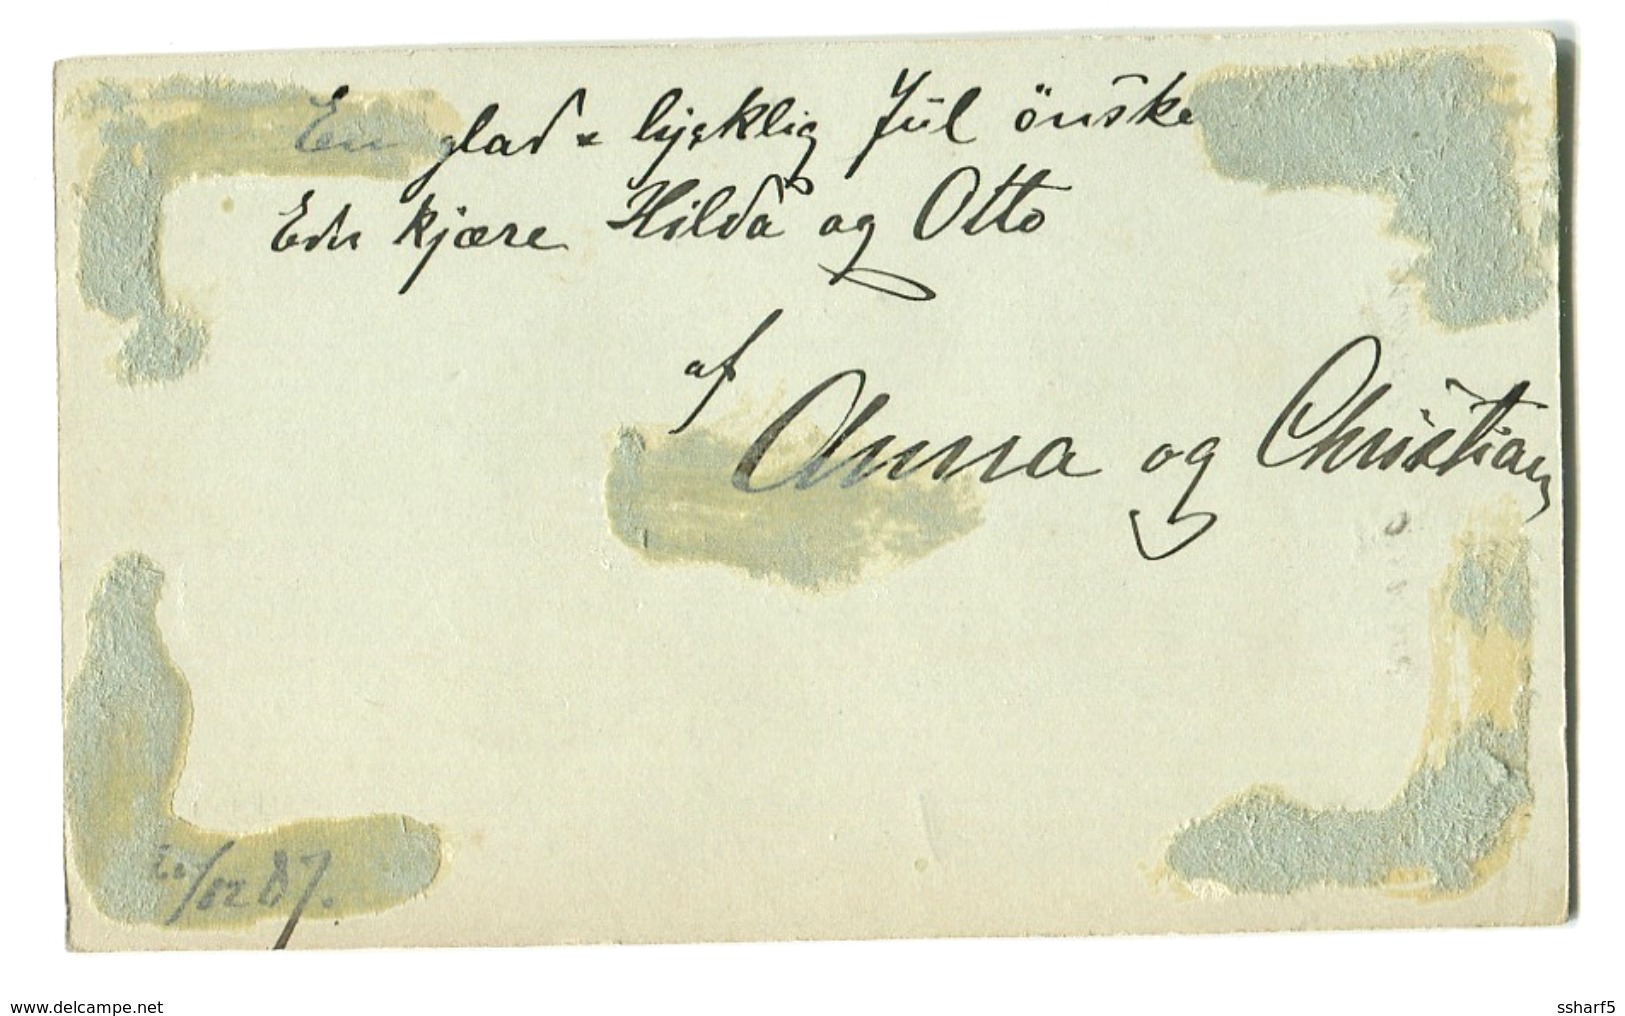 En glad & lykklig Jul önske
Eder kjære Hilda og Otto
af
Anna og Christian
20/12 87.
www.delcampe.net
ssharf5